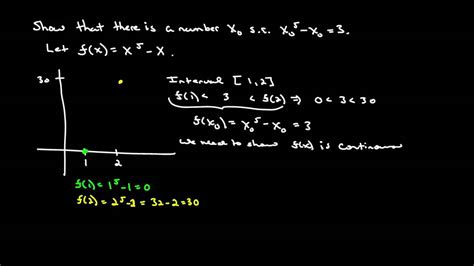 Show that there is a number x₀ s.t. x₀⁵-x₀ = 3.
Let f(x) = x⁵-x.
30
Interval [1,2]
f(1) < 3 < f(2) ⇒ 0 < 3 < 30
f(x₀) = x₀⁵-x₀ = 3
We need to show f(x) is continuous
1 2
f(1) = 1⁵-1 = 0
f(2) = 2⁵-2 = 32-2 = 30